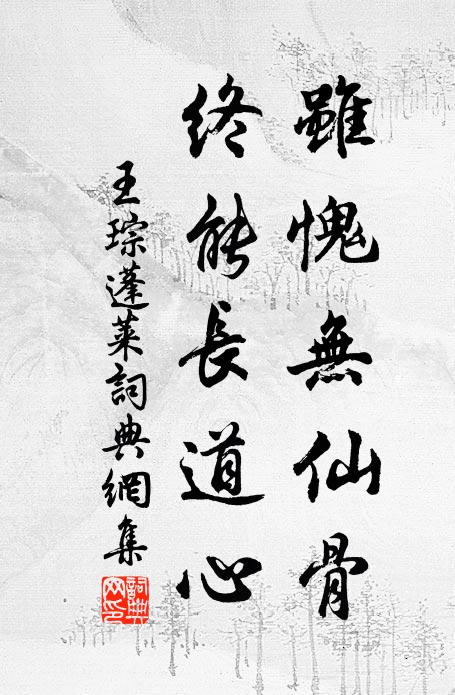 雖愧無仙骨
終能長道心
王琮蓬萊詞典網集